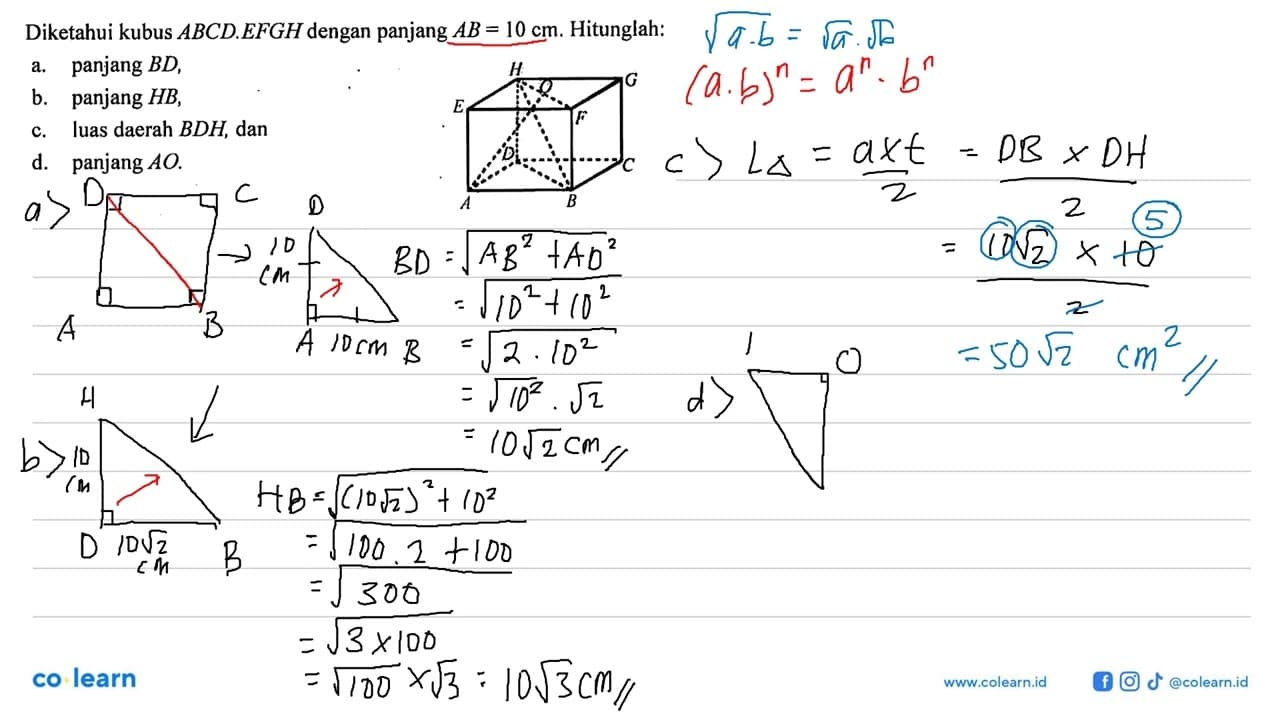 Diketahui kubus ABCD.EFGH dengan panjang AB = 10 cm. Hitunglah:
a. panjang BD,
b. panjang HB,
c. luas daerah BDH, dan
d. panjang AO.
H
G
E
O
F
D
C
A
B
√a.b = √a . √b
(a.b)ⁿ = aⁿ . bⁿ
a>
D
C
A
B
→
D
10
cm
A 10 cm B
BD = √AB² + AD²
= √10² + 10²
= √2 . 10²
= √10² . √2
= 10√2 cm //
b>
H
10
cm
D 10√2 cm B
HB = √(10√2)² + 10²
= √100 . 2 + 100
= √300
= √3 × 100
= √100 × √3 = 10√3 cm //
c> L△ = a×t / 2 = DB × DH / 2
5
= 10√2 × 10 / 2
= 50√2 cm² //
d>
O
co learn
www.colearn.id
@colearn.id